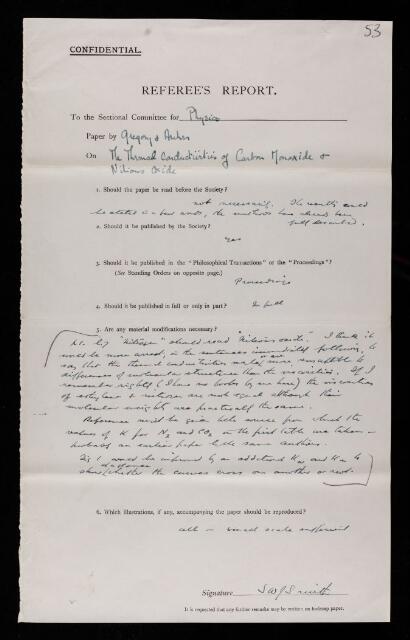 53
CONFIDENTIAL.
REFEREE'S REPORT.
To the Sectional Committee for Physics
Paper by Gregory & Archer
On The Thermal Conductivities of Carbon Monoxide &
Nitrous Oxide
1. Should the paper be read before the Society?
not necessary. The results could
be stated in a few words, the methods have already been
full described.
2. Should it be published by the Society?
Yes
3. Should it be published in the "Philosophical Transactions" or the "Proceedings"?
(See Standing Orders on opposite page.)
Proceedings
4. Should it be published in full or only in part?
In full
5. Are any material modifications necessary?
"Nitrogen" should read "Nitrous oxide". I think it
would be more correct, in the sentences immediately following, to
say that the thermal conductivities are more sensitive to
differences of molecular structure than the viscosities. If I
remember rightly (I have no books by me here) the viscosities
of ethylene & nitrogen are not equal although their
molecular weights are practically the same.
Reference must be given to the source from which the
values of K for N₂ and CO₂ in the first table are taken –
probably an earlier paper by the same authors.
Fig 1 would be improved by an additional
the curves cross one another or not.
6. Which illustrations, if any, accompanying the paper should be reproduced?
all – small scale
Signature SWJ Smith
It is requested that any further remarks may be written on foolscap paper.